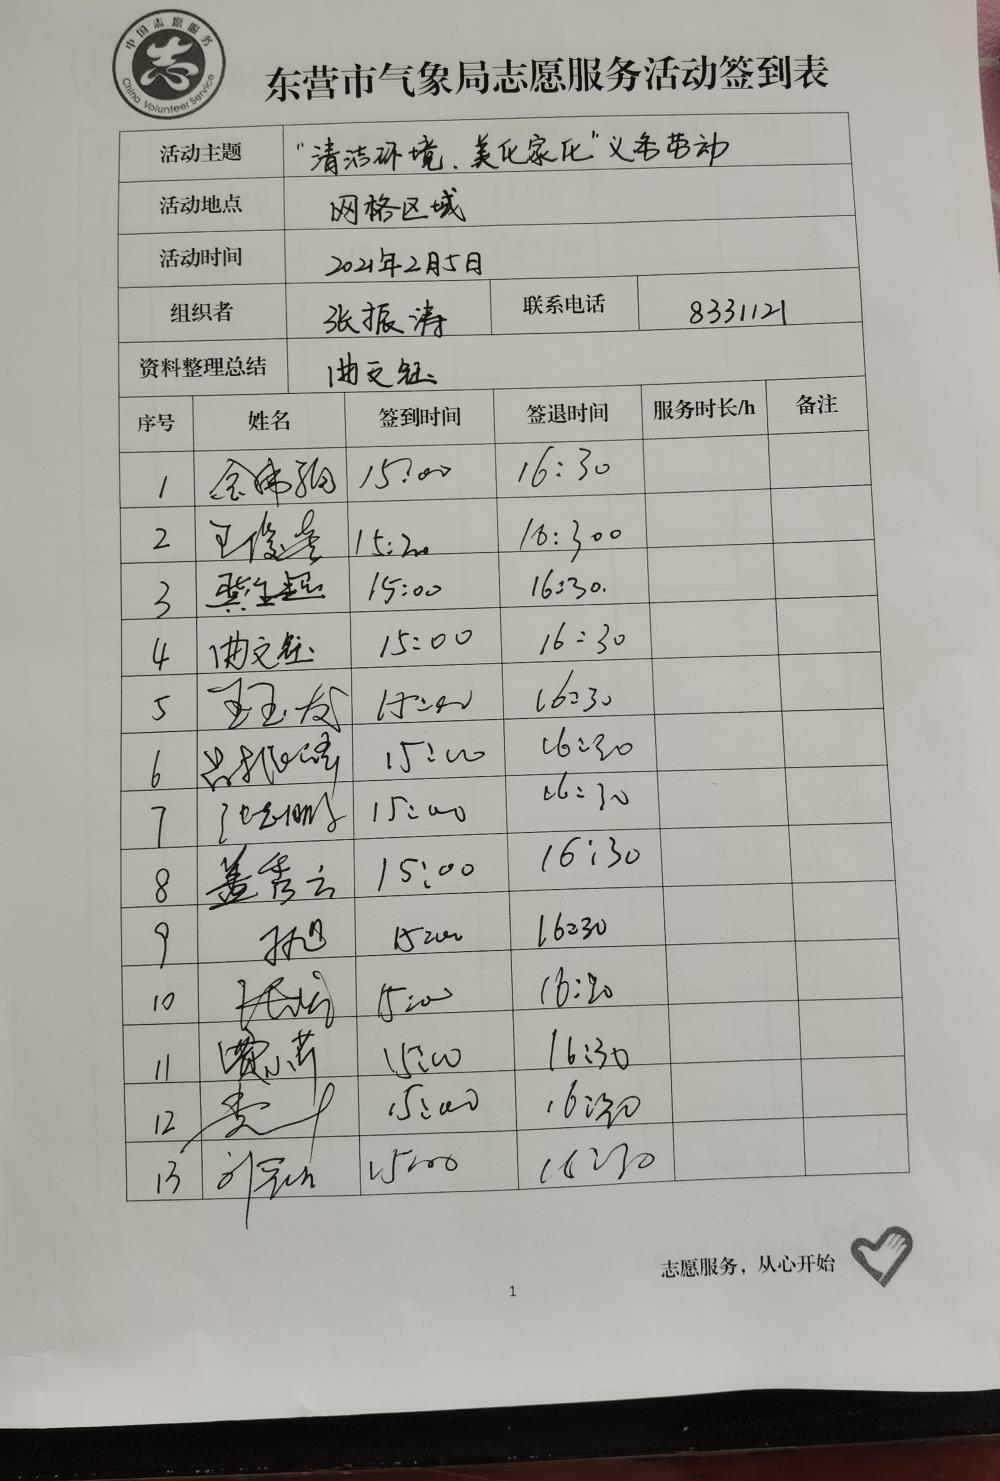 中国志愿服务
志
China Volunteer Service
东营市气象局志愿服务活动签到表
活动主题 "清洁环境、美化家化"义务劳动
活动地点 网格区域
活动时间 2021年2月5日
组织者 张振涛 联系电话 8331121
资料整理总结 曲文钰
序号 姓名 签到时间 签退时间 服务时长/h 备注
1 15:00 16:30
2 王俊 15:20 16:300
3 15:00 16:30.
4 曲文钰 15:00 16:30
5 王玉 15:00 16:30
6 15:00 16:30
7 15:00 16:30
8 盖秀云 15:00 16:30
9 15:00 16:30
10 15:00 16:30
11 15:00 16:30
12 15:00 16:30
13 刘 15:00 16:30
志愿服务，从心开始
1